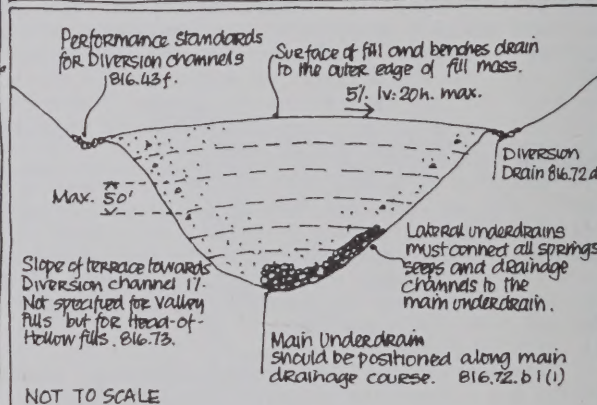 Performance standards
for Diversion channels
816.43f.
Surface of fill and benches drain
to the outer edge of fill mass.
5% 1v:20h. max.
Diversion
Drain 816.72d
Max. 50'
Lateral underdrains
must connect all springs
seeps and drainage
channels to the
main underdrain.
Slope of terrace towards
Diversion channel 1%
Not specified for Valley
Fills but for Head-of-
Hollow fills. 816.73.
Main Underdrain
should be positioned along main
drainage course. 816.72.b1(1)
NOT TO SCALE